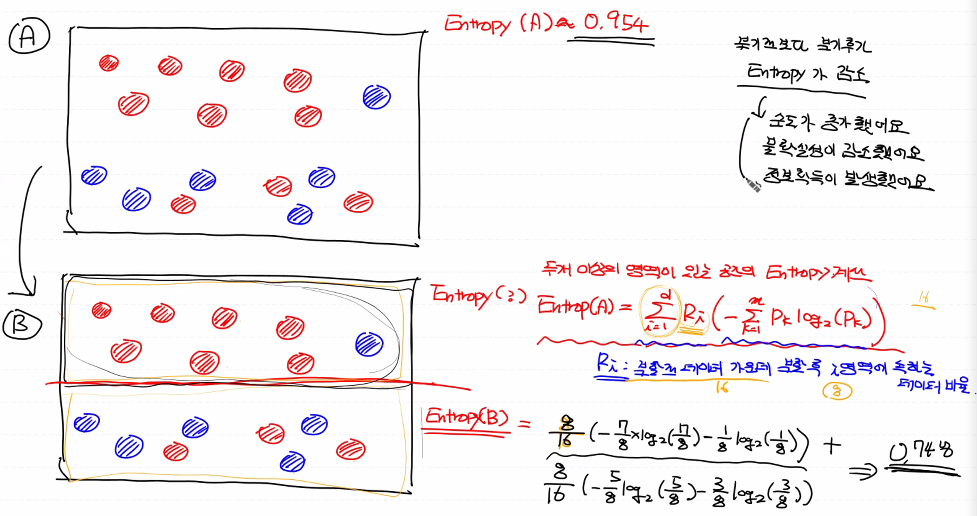 A
Entropy (A) ≈ 0.954
분기전보다 분기후가
Entropy가 감소
순도가 증가했어요
불확실성이 감소했어요
정보획득이 발생했어요
B
두개 이상의 영역이 있는 공간의 Entropy 계산
Entropy(2) Entrop(A) = \sum_{i=1}^{d} R_i ( -\sum_{k=1}^{m} P_k log_2 (P_k) )
16
R_i : 분할전 데이터 가운데 분할후 i영역에 속하는 데이터 비율
16
8
Entropy(B) = 8/16 ( -7/8 × log_2 (7/8) - 1/8 log_2 (1/8) ) +
8/16 ( -5/8 log_2 (5/8) - 3/8 log_2 (3/8) )
⇒ 0.748